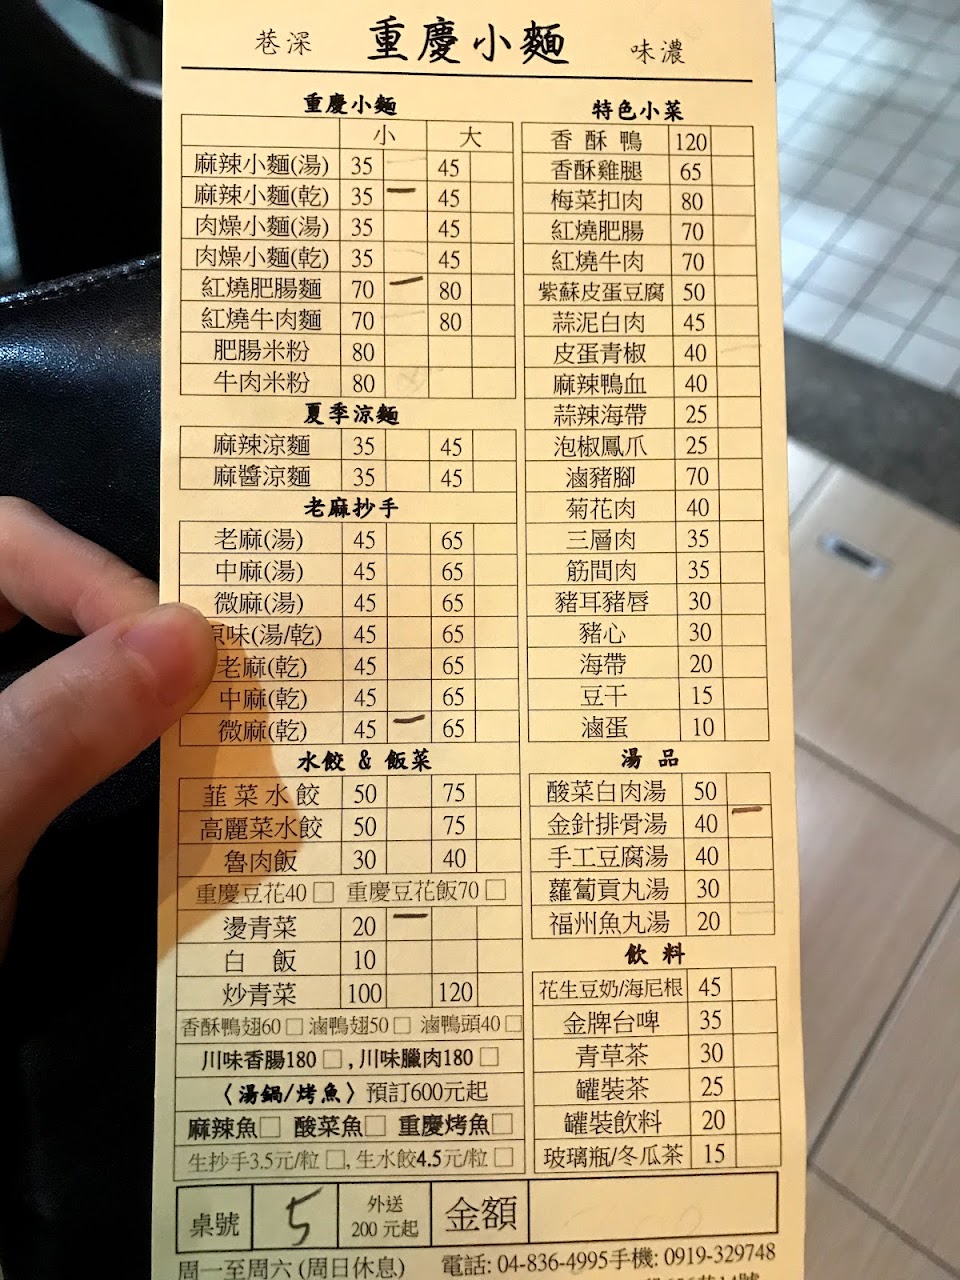 巷深 重慶小麵 味濃
重慶小麵
小 大
麻辣小麵(湯) 35 45
麻辣小麵(乾) 35 45
肉燥小麵(湯) 35 45
肉燥小麵(乾) 35 45
紅燒肥腸麵 70 80
紅燒牛肉麵 70 80
肥腸米粉 80
牛肉米粉 80
夏季涼麵
麻辣涼麵 35 45
麻醬涼麵 35 45
老麻抄手
老麻(湯) 45 65
中麻(湯) 45 65
微麻(湯) 45 65
原味(湯/乾) 45 65
老麻(乾) 45 65
中麻(乾) 45 65
微麻(乾) 45 65
水餃 & 飯菜
韮菜水餃 50 75
高麗菜水餃 50 75
魯肉飯 30 40
重慶豆花40 □ 重慶豆花飯70 □
燙青菜 20
白 飯 10
炒青菜 100 120
香酥鴨翅60 □ 滷鴨翅50 □ 滷鴨頭40 □
川味香腸180 □ , 川味臘肉180 □
〈湯鍋/烤魚〉預訂600元起
麻辣魚□ 酸菜魚□ 重慶烤魚□
生抄手3.5元/粒 □, 生水餃4.5元/粒 □
特色小菜
香 酥 鴨 120
香酥雞腿 65
梅菜扣肉 80
紅燒肥腸 70
紅燒牛肉 70
紫蘇皮蛋豆腐 50
蒜泥白肉 45
皮蛋青椒 40
麻辣鴨血 40
蒜辣海帶 25
泡椒鳳爪 25
滷豬腳 70
菊花肉 40
三層肉 35
筋間肉 35
豬耳豬唇 30
豬心 30
海帶 20
豆干 15
滷蛋 10
湯 品
酸菜白肉湯 50
金針排骨湯 40
手工豆腐湯 40
蘿蔔貢丸湯 30
福州魚丸湯 20
飲 料
花生豆奶/海尼根 45
金牌台啤 35
青草茶 30
罐裝茶 25
罐裝飲料 20
玻璃瓶/冬瓜茶 15
桌號 5 外送 200 元起 金額
周一至周六 (周日休息) 電話: 04-836-4995手機: 0919-329748